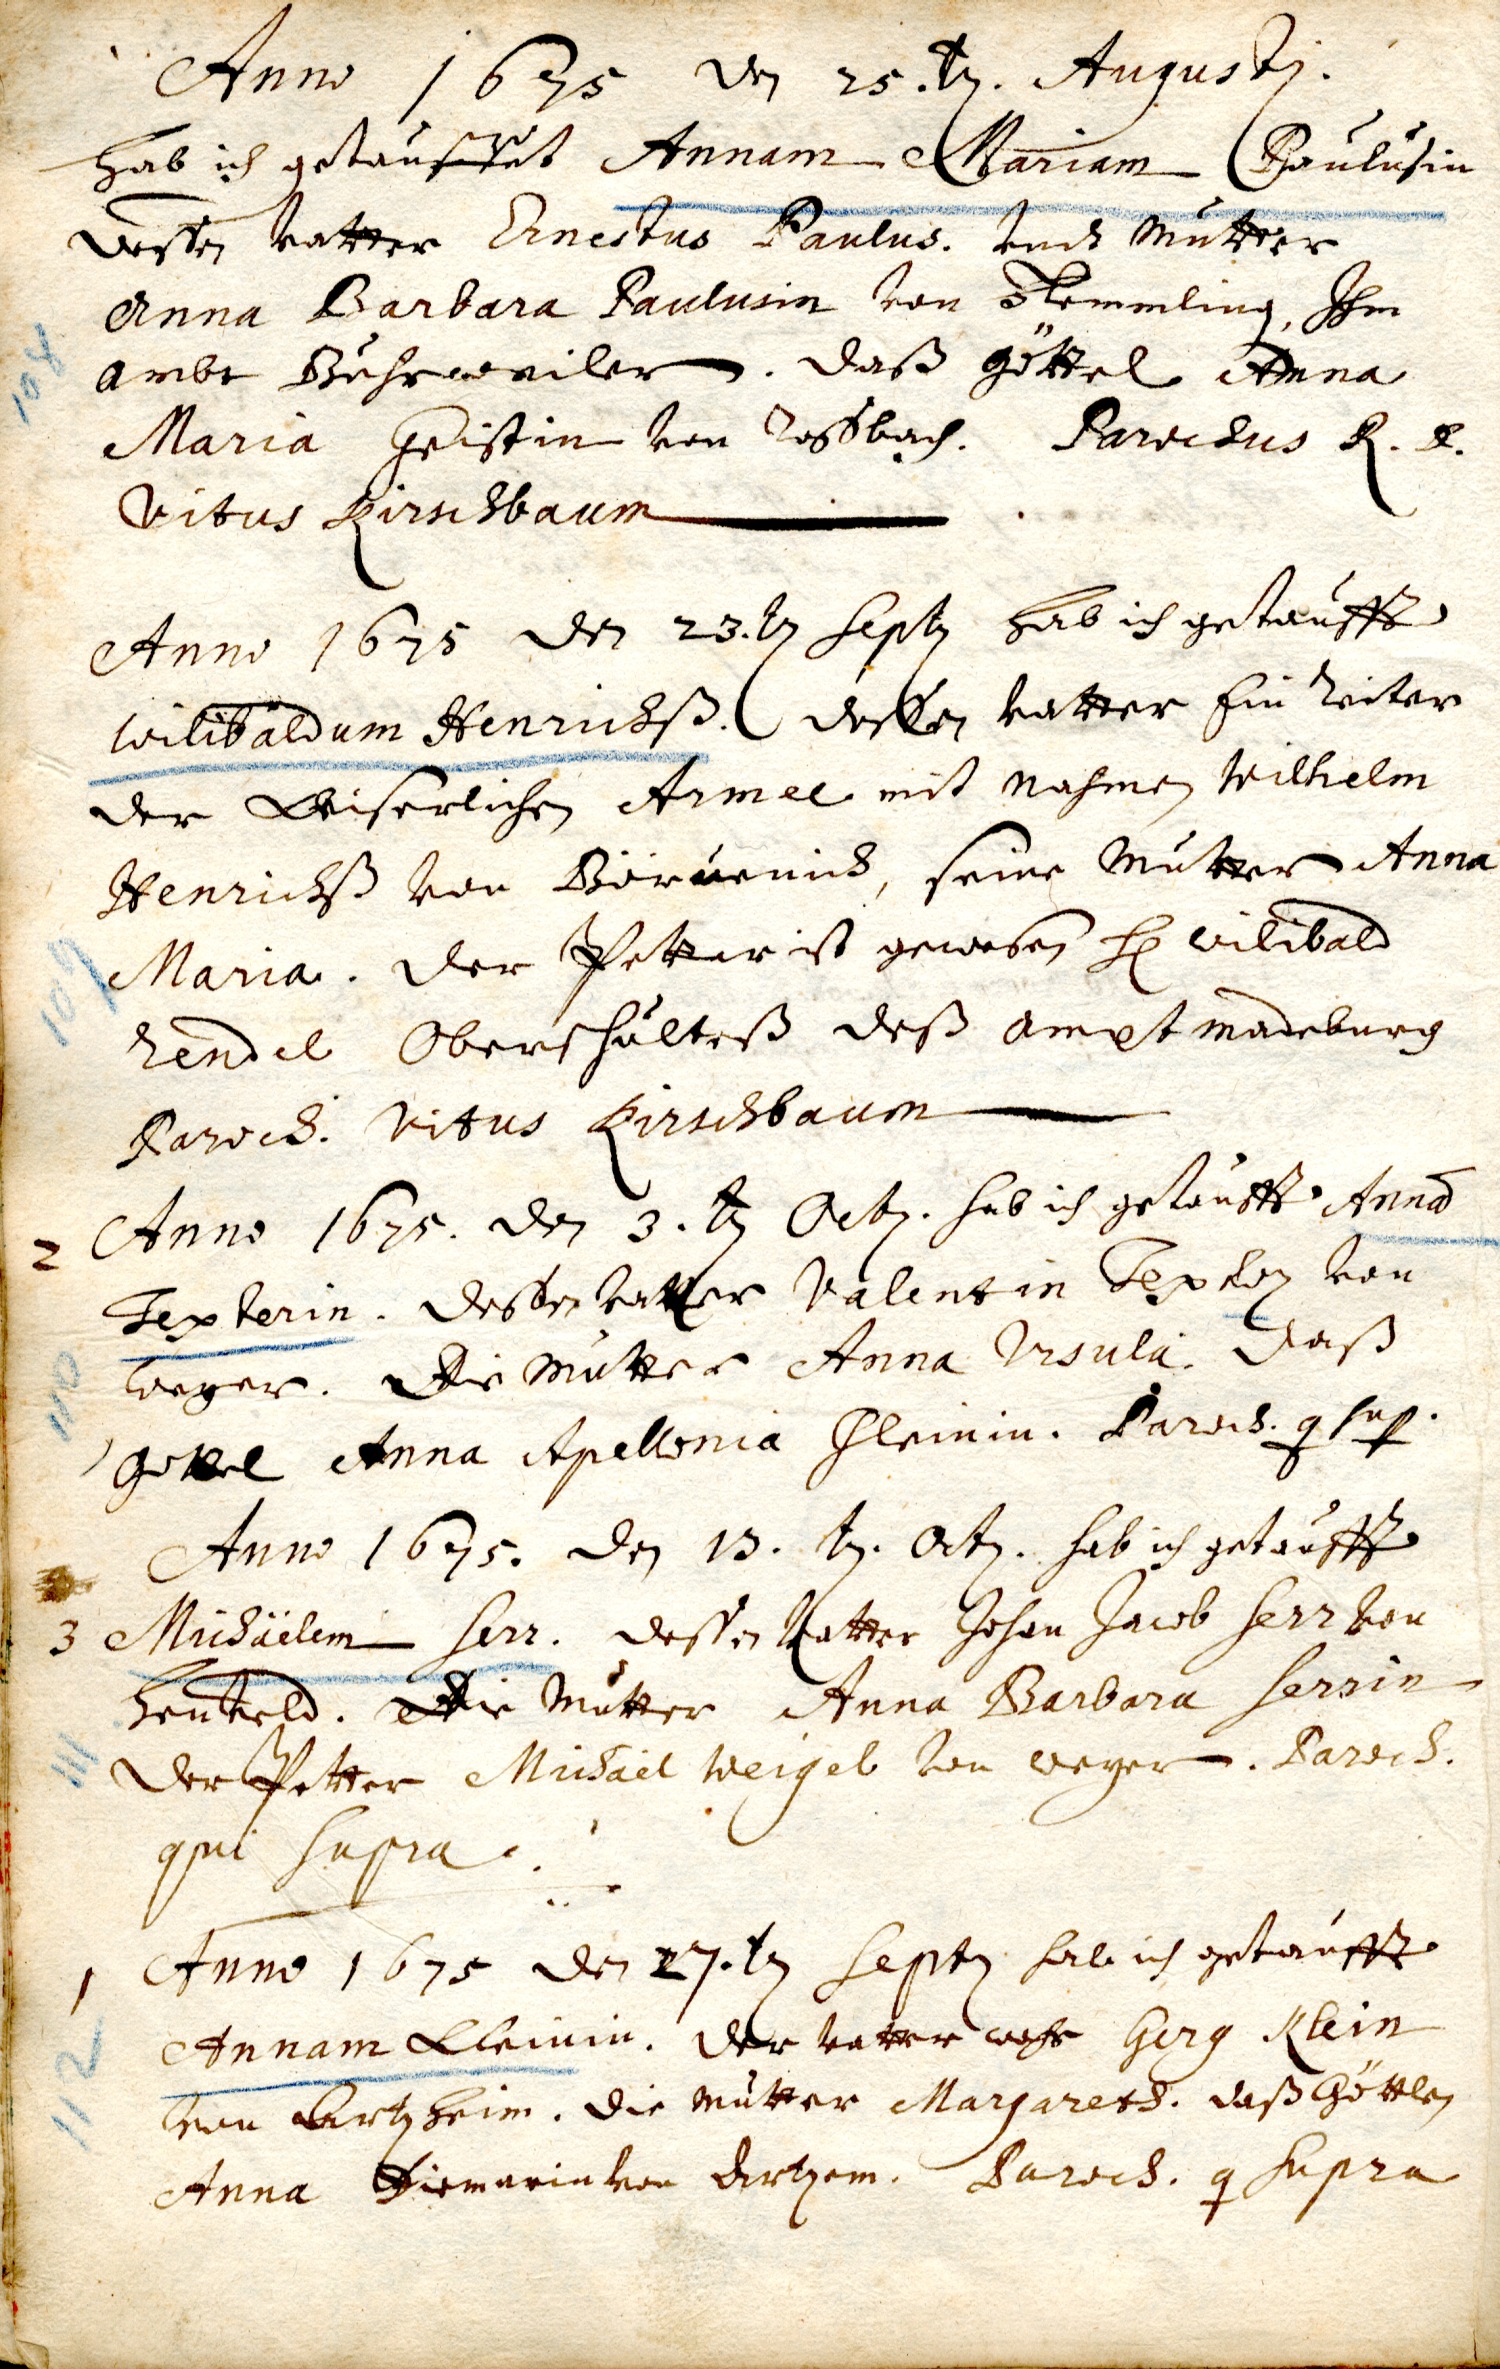 Anno 1675 den 25.tn. Augusti.
hab ich getauffet Annam Mariam Paulusin
dessen vatter Ernestus Paulus. undt Mutter
Anna Barbara Paulusin von Stemmling, Ihm
ambt . daß göttel Anna
Maria Geistin von Rossbach. Parochus R. P.
Vitus Kirschbaum
108
Anno 1675 den 23.tn Septn hab ich getaufft
Wilibaldum Henrichß. dessen vatter Ein reiter
der Keiserlichen Armee mit nahmen Wilhelm
Henrichß von , seine Mutter Anna
Maria. der Petter ist gewesen H wilibald
rendel Oberschulteß deß ampt madeburg
Paroch. Vitus Kirschbaum
109
2 Anno 1675. den 3.tn Octn. hab ich getaufft Annā
Texterin. dessen vatter Valentin Textor von
weyer. die Mutter Anna Ursula. daß
göttel Anna Apellonia Kleinin. Paroch. q sup.
110
Anno 1675. den 13. tn. Octn. hab ich getaufft
3 Michäelem Herr. dessen vatter Johan Jacob Herr von
. die Mutter Anna Barbara Herrin
der Petter Michäel Weigel von weyer. Paroch.
qui supra.
111
1 Anno 1675 den 27.tn Septn hab ich getaufft
Annam Kleinin. der vatter wahr Gerg Klein
von Artzheim. die Mutter Margareth. daß Göttlen
Anna von Artzem. Paroch. q supra
112